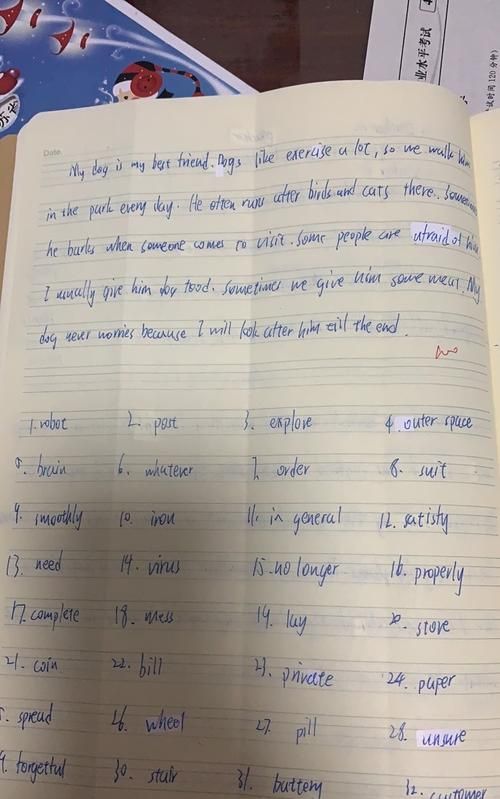 业水平考试
试时间120分钟)
Date.
My dog is my best friend. Dogs like exercise a lot, so we walk him
in the park every day. He often runs after birds and cats there. Sometimes
he barks when someone comes to visit. Some people are afraid of him
I usually give him dog food. Sometimes we give him some meat. My
dog never worries because I will look after him till the end.
1. robot 2. post 3. explore 4. outer space
5. brain 6. whatever 7. order 8. suit
9. smoothly 10. iron 11. in general 12. satisfy
13. need 14. virus 15. no longer 16. properly
17. complete 18. mess 19. lay 20. store
21. coin 22. bill 23. private 24. paper
5. spread 26. wheel 27. pill 28. unsure
9. forgetful 30. stair 31. battery 32. customer